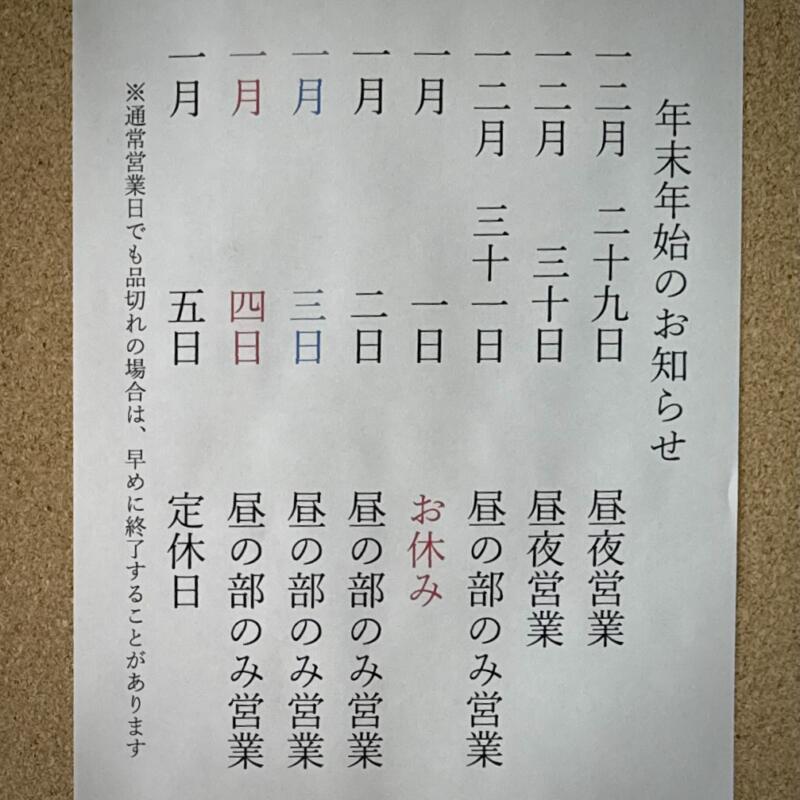 年末年始のお知らせ
一二月 二十九日 昼夜営業
一二月 三十日 昼夜営業
一二月 三十一日 昼の部のみ営業
一月 一日 お休み
一月 二日 昼の部のみ営業
一月 三日 昼の部のみ営業
一月 四日 昼の部のみ営業
一月 五日 定休日
※通常営業日でも品切れの場合は、早めに終了することがあります